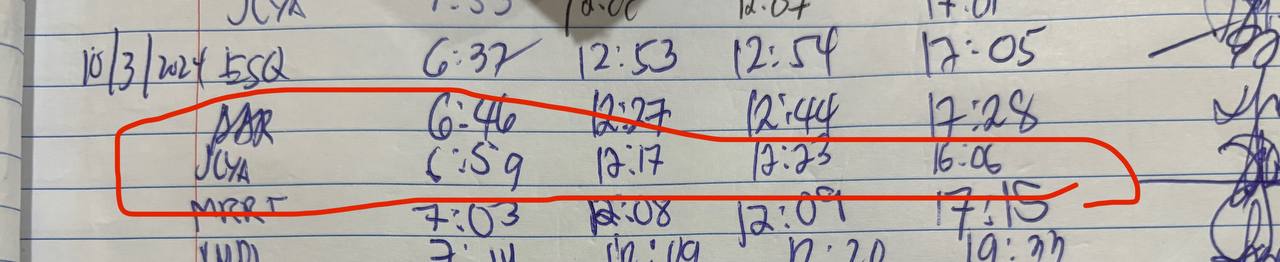 JCYA 12:07 17:01
10/3/2024 ESQ 6:37 12:53 12:54 17:05
6:46 12:27 12:44 17:28
JCYA 6:59 12:17 12:23 16:06
MRRT 7:03 12:08 12:09 17:15
12:20 19:33